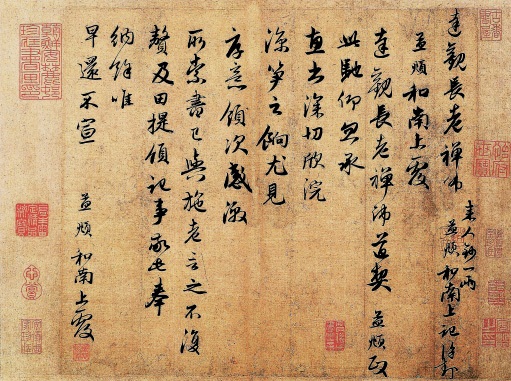 達觀長老禪師
來人鈔一兩
孟頫和南上記謹封
孟頫和南上覆
達觀長老禪師道契 孟頫政
此馳仰忽承
惠書深切欣浣
深筍之餉尤見
厚意領次感激
所索書已與施老言之不復
贅及田提領記事敬此奉
納餘唯
早還不宣 孟頫和南上覆